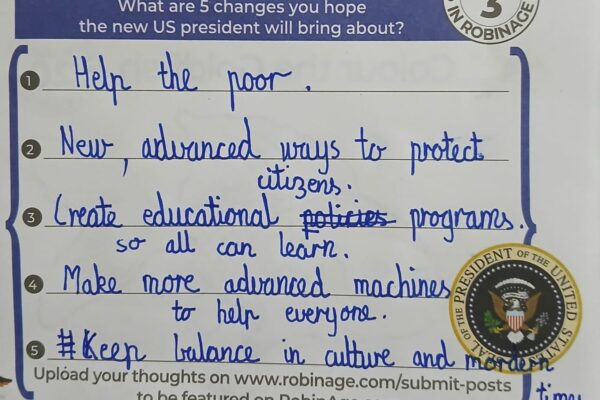 What are 5 changes you hope
the new US president will bring about?
3
IN ROBINAGE
1 Help the poor.
2 New, advanced ways to protect
citizens.
3 Create educational policies programs.
so all can learn.
4 Make more advanced machines
to help everyone.
SEAL OF THE PRESIDENT OF THE UNITED STATES
5 #Keep balance in culture and mordern
times
Upload your thoughts on www.robinage.com/submit-posts
to be featured on RobinAge